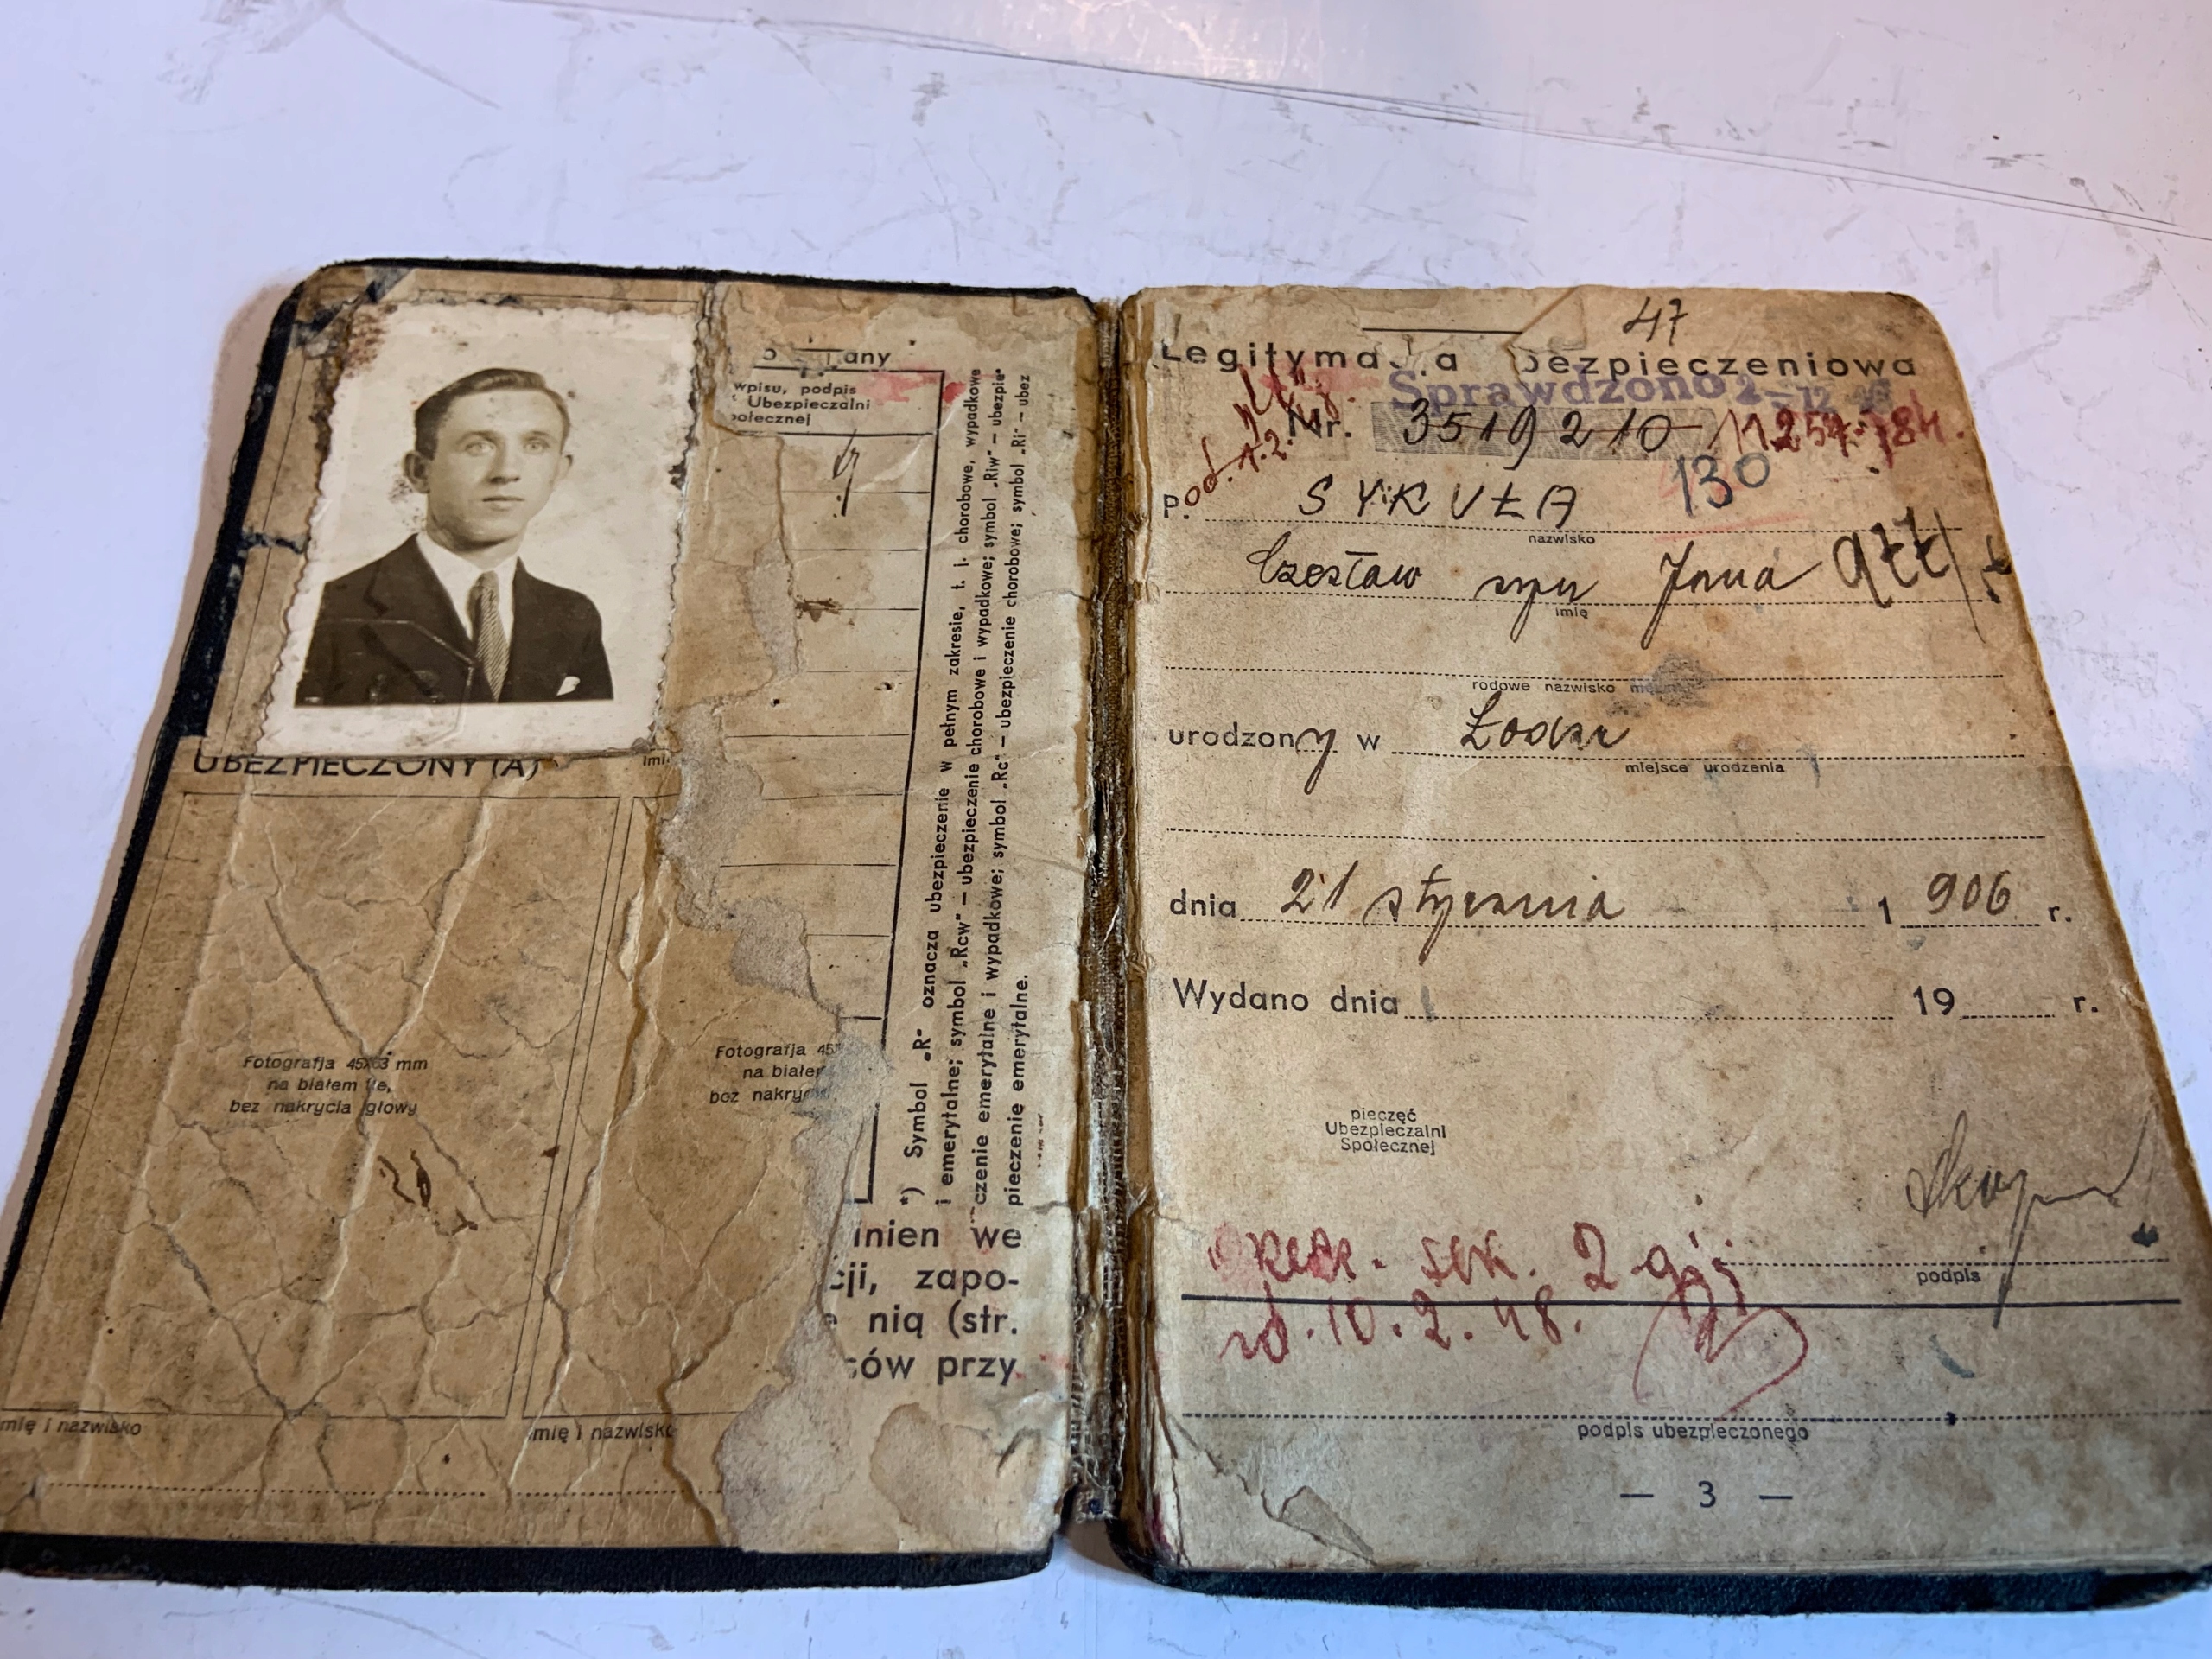 any
wpisu, podpis
Ubezpieczalni
połecznej
UBEZPIECZONY (A)
Fotografja 45X63 mm
na białem tle,
bez nakrycia głowy
Fotografja 45
na białem
bez nakryc
mię i nazwisko
mię i nazwisko
*) Symbol „R" oznacza ubezpieczenie w pełnym zakresie, t. j. chorobowe, wypadkowe
i emerytalne; symbol „Rcw" — ubezpieczenie chorobowe i wypadkowe; symbol „Riw" — ubezpie-
czenie emerytalne i wypadkowe; symbol „Rc" — ubezpieczenie chorobowe; symbol „Ri" — ubez
pieczenie emerytalne.
inien we
cji, zapo-
nią (str.
sów przy
47
Legitymacja bezpieczeniowa
Sprawdzono 2-12
Nr. 3519210 11.254.784.
od 1.2.
130
P. SYKUŁA
nazwisko
Czesław syn Jana 977/
imię
rodowe nazwisko
urodzony w Łodzi
miejsce urodzenia
dnia 21 stycznia 1 906 r.
Wydano dnia 19 r.
pieczęć
Ubezpieczalni
Społecznej
podpis
sek. 2
od. 10. 2. 48.
podpis ubezpieczonego
— 3 —